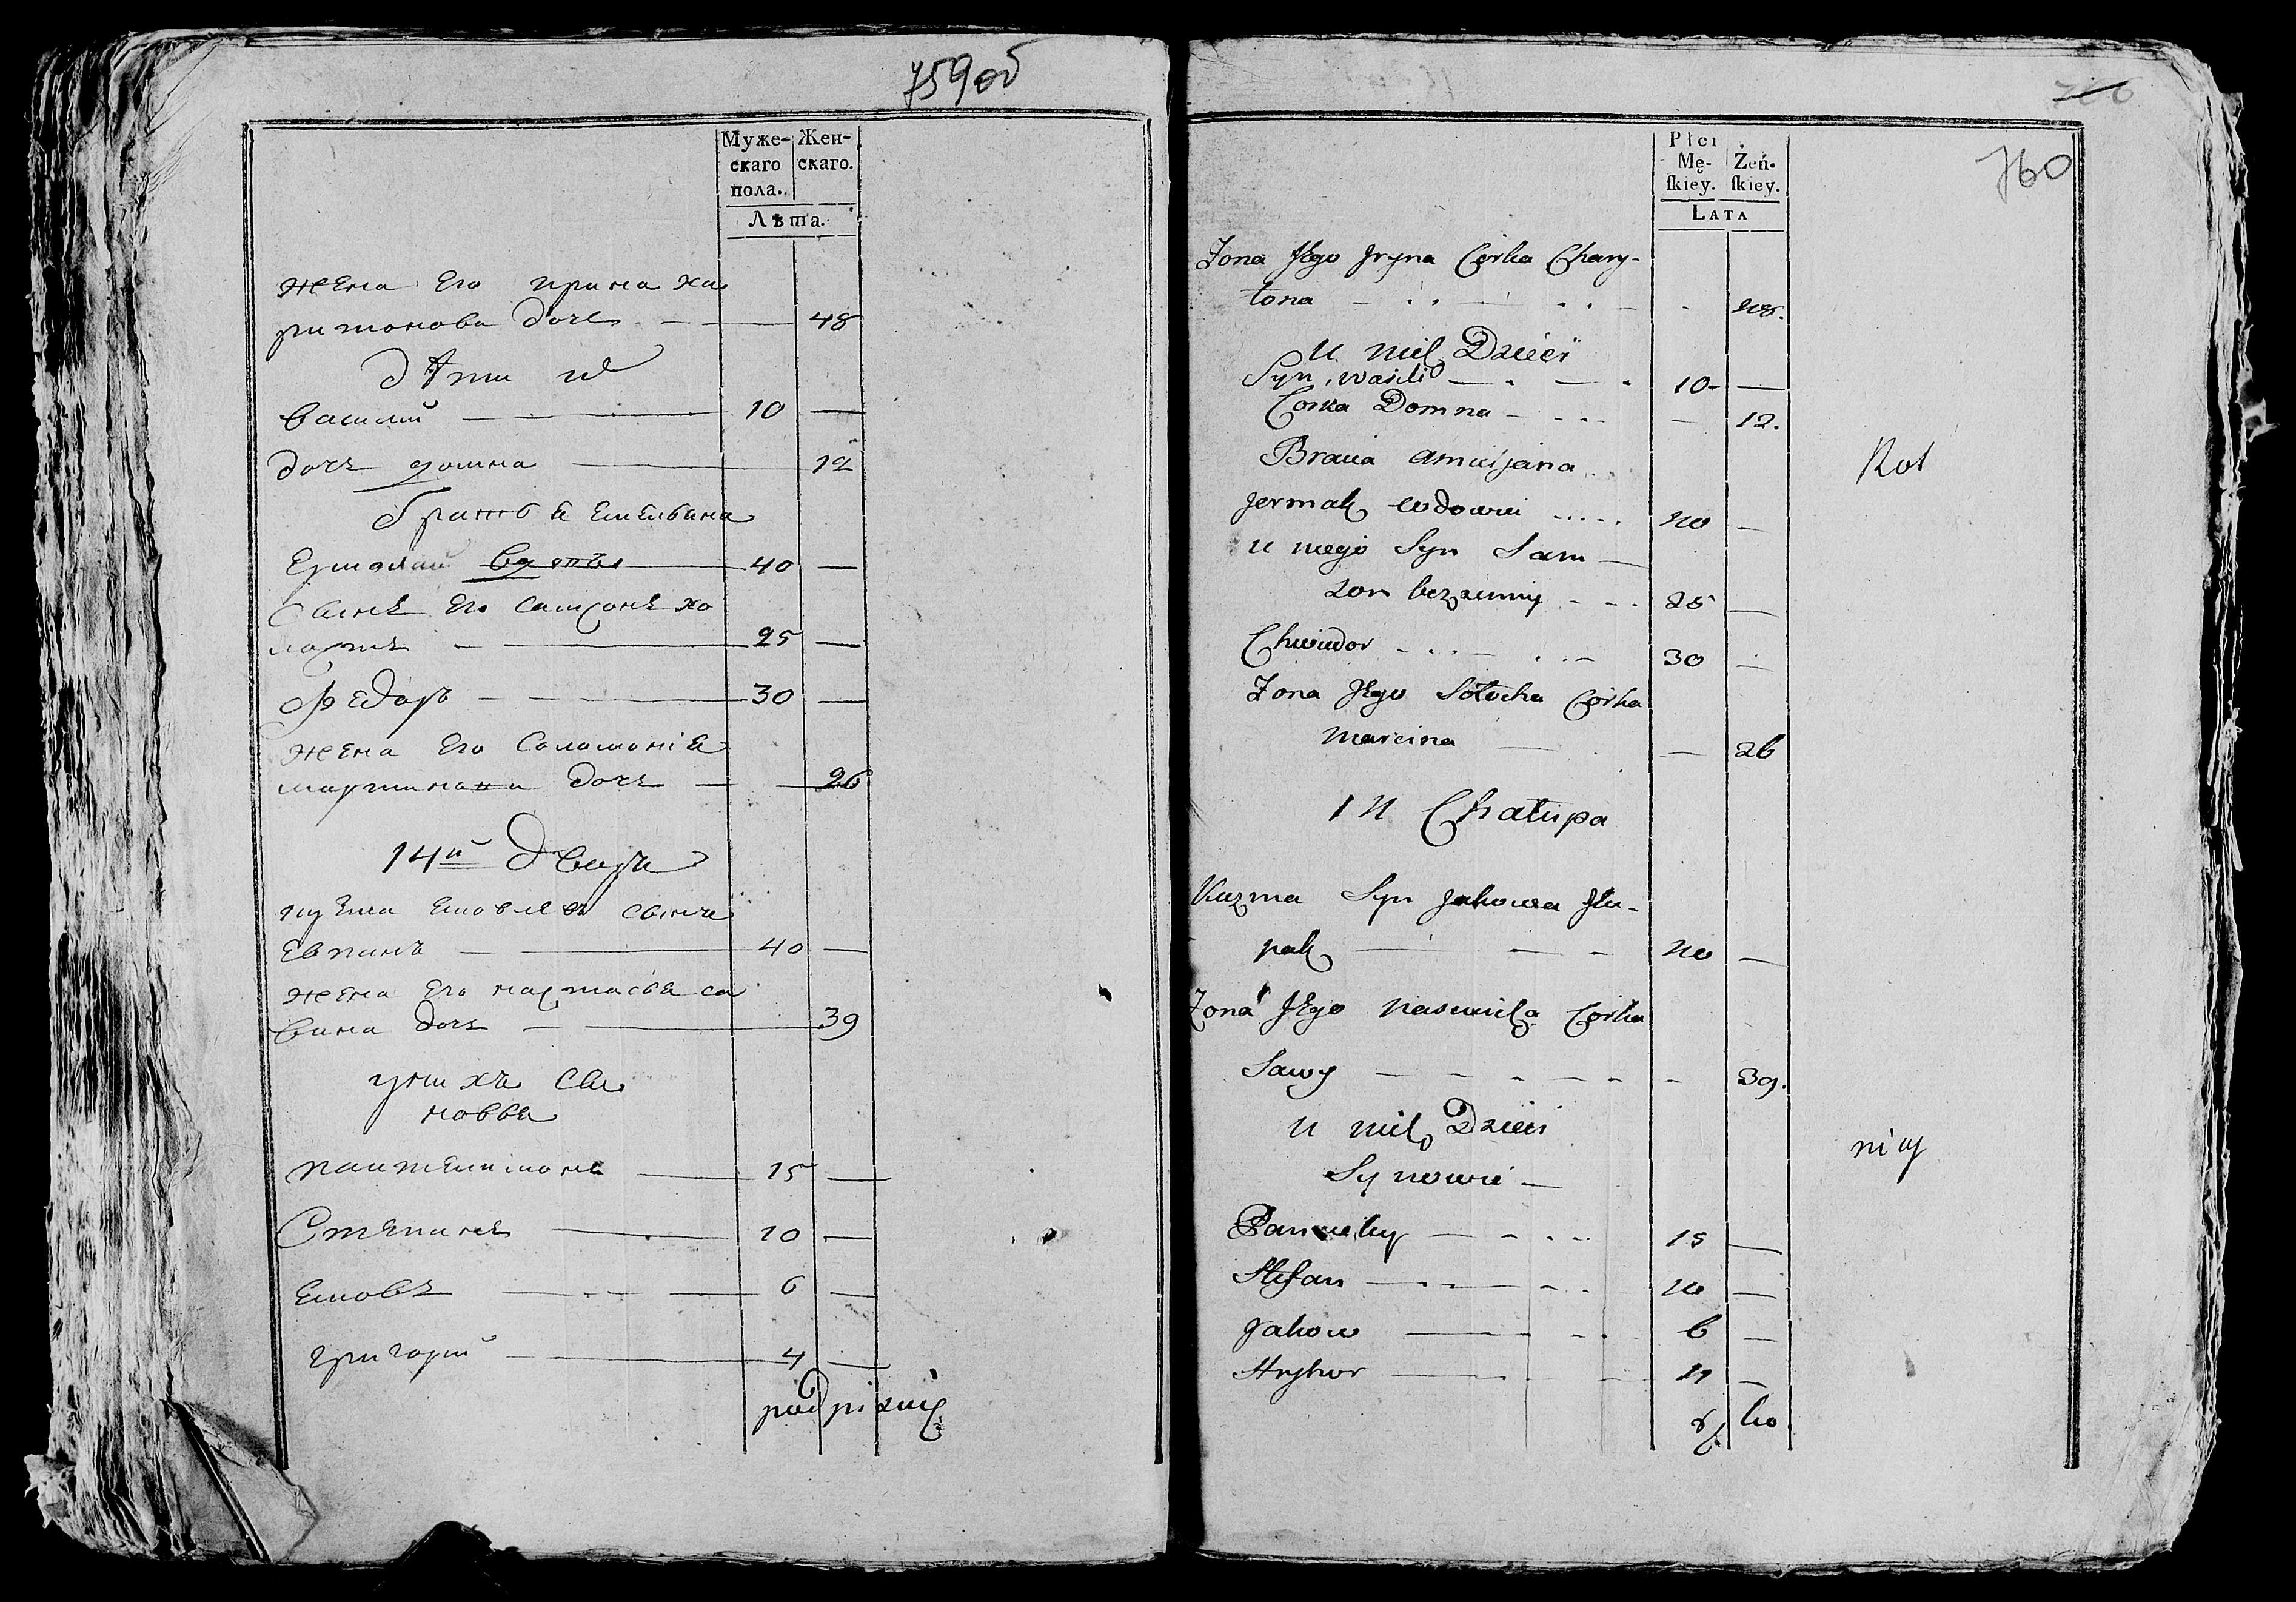 759об
Муже-
скаго
пола.
Жен-
скаго.
Лѣта.
жена его ирина ха
ритонова дочь 48
дѣти
василий 10
дочь домна 12
братья емельяна
Ермолай вдовъ 40
Сынъ его самсонъ хо
лостъ 25
Федоръ 30
жена его Соломонія
мартинова дочь 26
14й двора
кузма яковлевъ сынъ
40
жена его настасья са
вина дочь 39
у них сы
новья
пантелимонъ 15
Степанъ 10
Яковъ 6
григорий 4
760
Płci
Mę-
ſkiey.
Żeń-
ſkiey.
LATA
Żona Jego Jryna Corka Chary-
tona 48.
U nich Dzieci
Syn Wasili 10
Corka Domna 12.
Bracia Amiljana
Kot
Jermak wdowiec 40
u niego Syn Sam-
zon bezzenny 25
Chwiedor 30
Żona Jego Sołocha Corka
Marcina 26
14 Chałupa
Kuzma Syn Jakowa
40
Żona Jego Nasci Corka
Sawy 39.
U nich Dzieci
Synowie
15
Stefan 10
Jakow 6
Hryhor 4